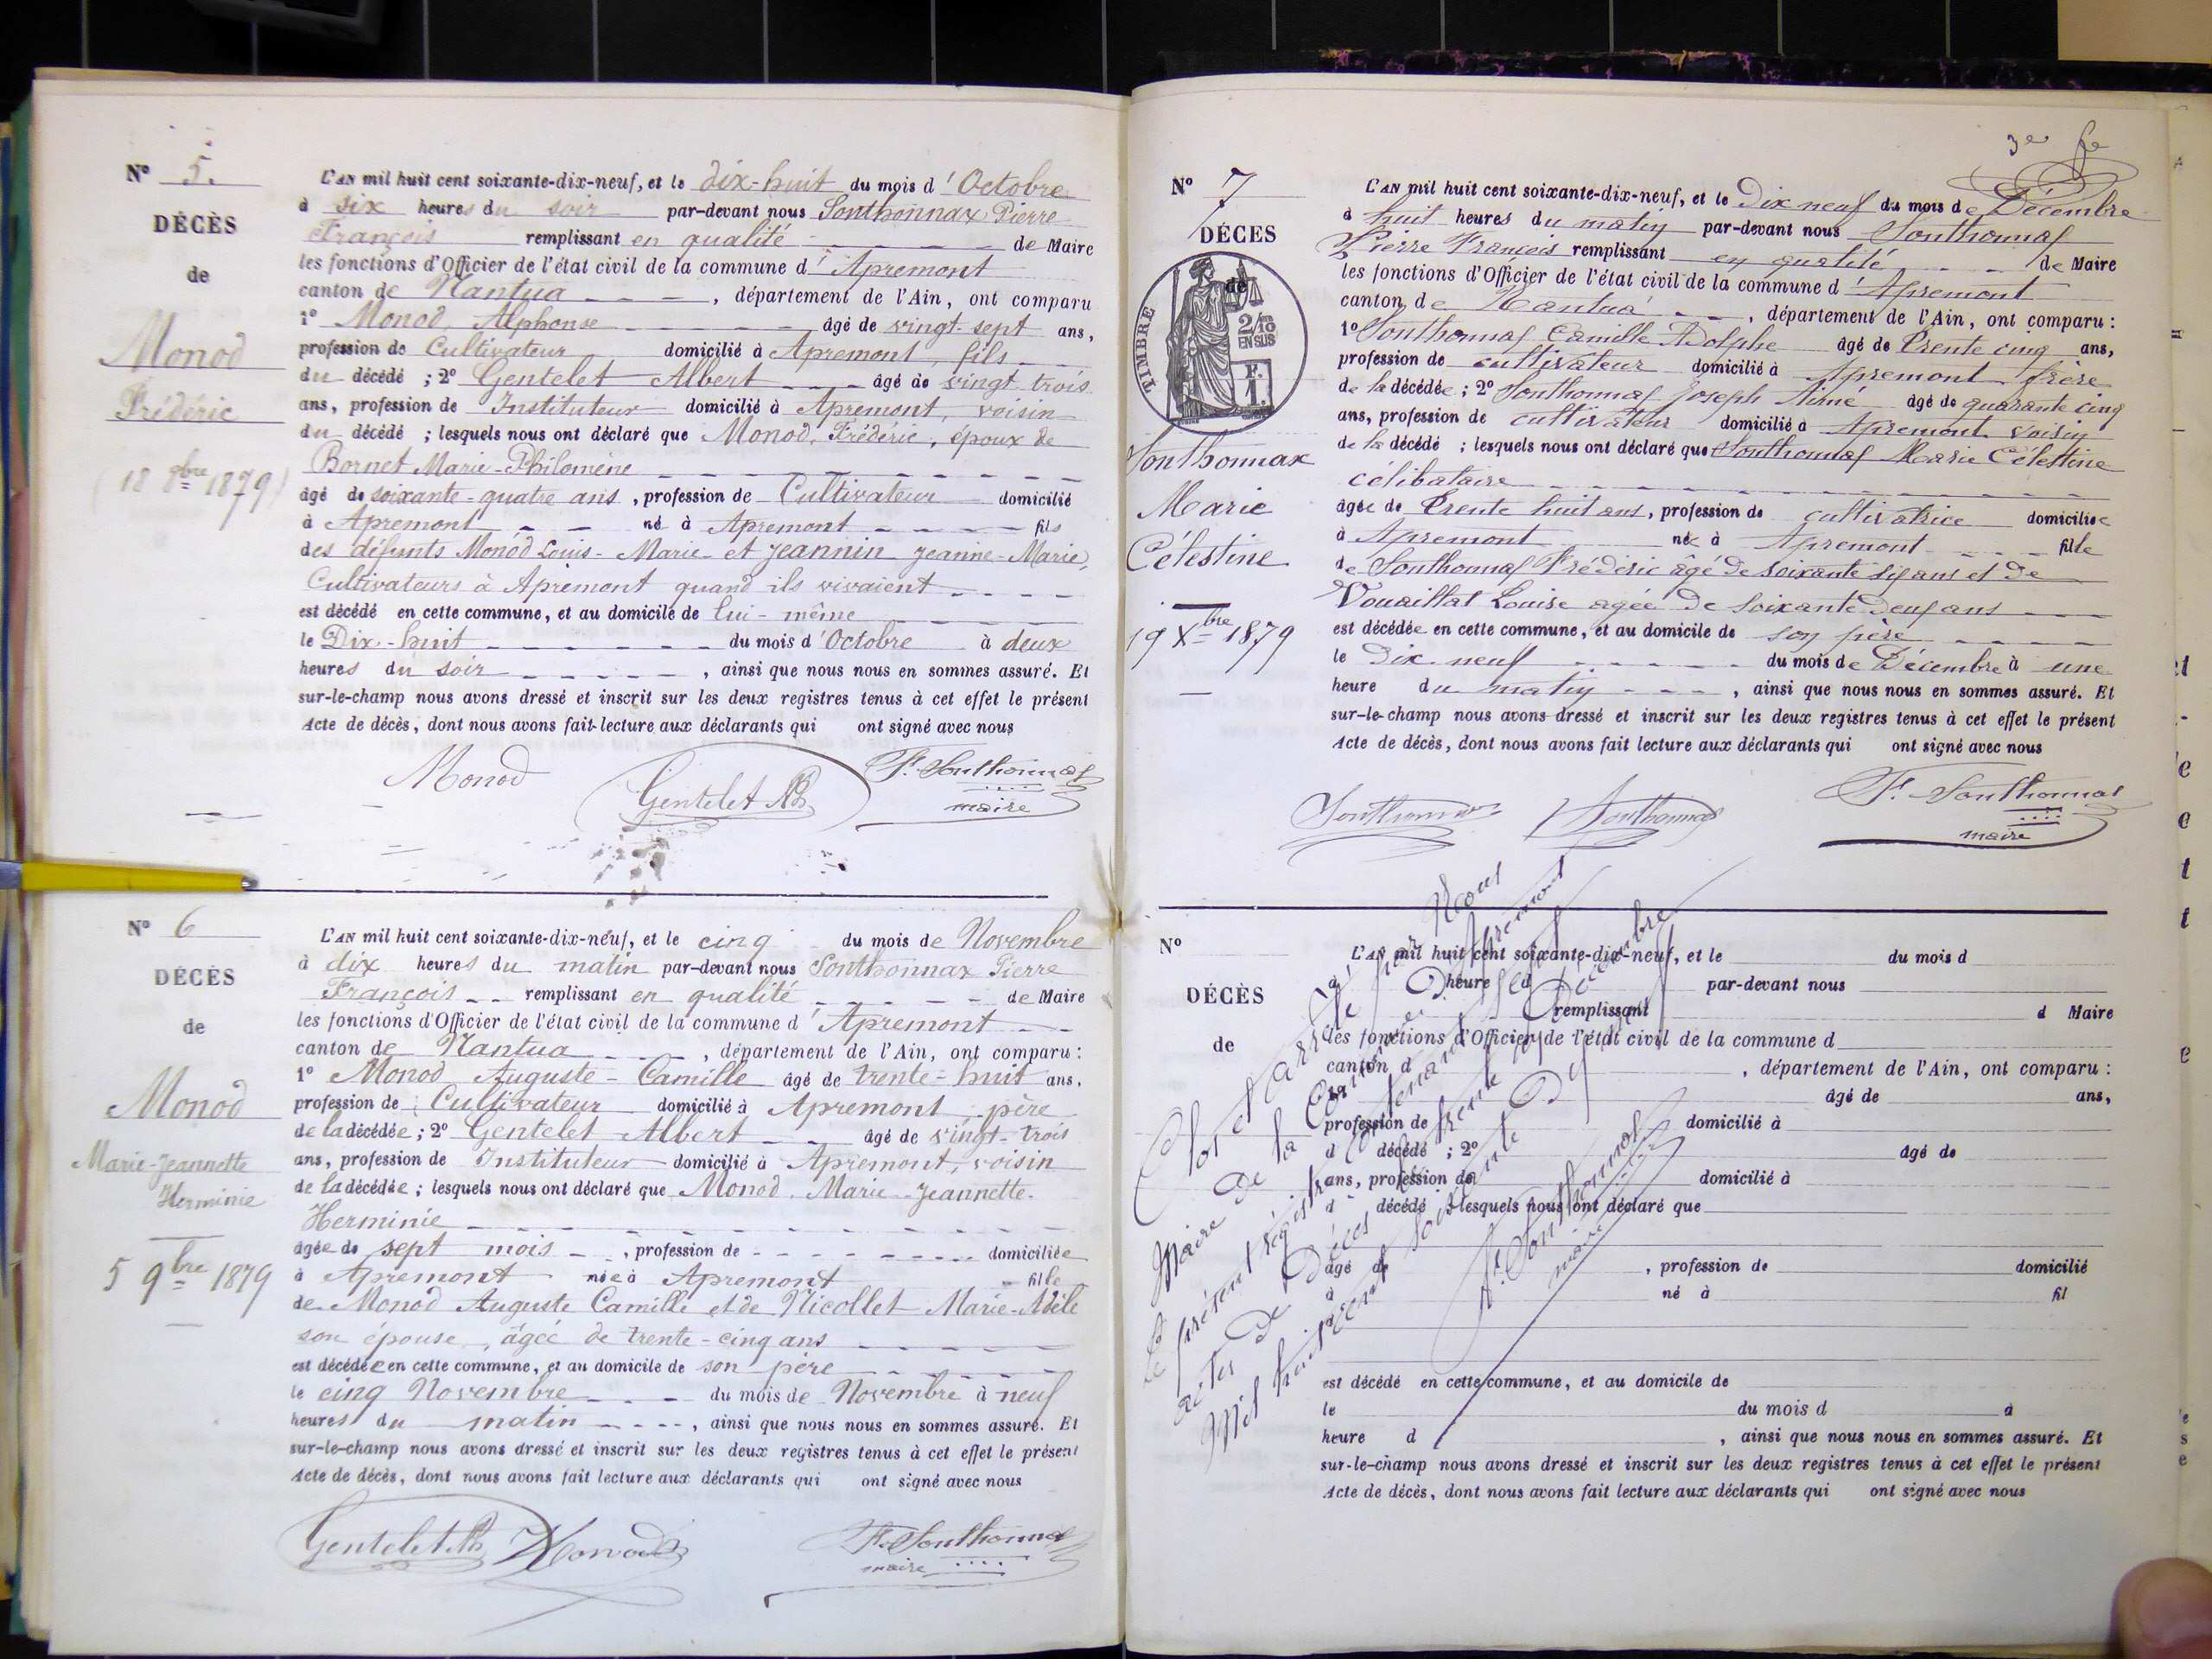 N° 5.
DÉCÈS
de
Monod
Frédéric
(18 8bre 1879)
L'AN mil huit cent soixante-dix-neuf, et le dix-huit du mois d'Octobre
à six heures du soir par-devant nous Sonthonnax Pierre
François remplissant en qualité de Maire
les fonctions d'Officier de l'état civil de la commune d'Apremont
canton de Nantua, département de l'Ain, ont comparu
1° Monod, Alphonse âgé de vingt-sept ans,
profession de Cultivateur domicilié à Apremont, fils
du décédé ; 2° Gentelet Albert âgé de vingt trois
ans, profession de Instituteur domicilié à Apremont, voisin
du décédé ; lesquels nous ont déclaré que Monod, Frédéric, époux de
Bornet Marie-Philomène
âgé de soixante-quatre ans, profession de Cultivateur domicilié
à Apremont né à Apremont fils
des défunts Monod Louis-Marie et Jeannin Jeanne-Marie,
Cultivateurs à Apremont quand ils vivaient
est décédé en cette commune, et au domicile de lui-même
le Dix-huit du mois d'Octobre à deux
heures du soir, ainsi que nous nous en sommes assuré. Et
sur-le-champ nous avons dressé et inscrit sur les deux registres tenus à cet effet le présent
Acte de décès, dont nous avons fait lecture aux déclarants qui ont signé avec nous
Monod Gentelet Ab F. Sonthonnax
maire
N° 6
DÉCÈS
de
Monod
Marie-Jeannette
Herminie
5 9bre 1879
L'AN mil huit cent soixante-dix-neuf, et le cinq du mois de Novembre
à dix heures du matin par-devant nous Sonthonnax Pierre
François remplissant en qualité de Maire
les fonctions d'Officier de l'état civil de la commune d'Apremont
canton de Nantua, département de l'Ain, ont comparu :
1° Monod Auguste-Camille âgé de trente-huit ans,
profession de Cultivateur domicilié à Apremont, père
de la décédée ; 2° Gentelet Albert âgé de vingt-trois
ans, profession de Instituteur domicilié à Apremont, voisin
de la décédée ; lesquels nous ont déclaré que Monod, Marie-Jeannette-
Herminie
âgée de sept mois, profession de domiciliée
à Apremont née à Apremont fille
de Monod Auguste Camille et de Nicollet Marie-Adèle
son épouse, âgée de trente-cinq ans
est décédée en cette commune, et au domicile de son père
le cinq Novembre du mois de Novembre à neuf
heures du matin, ainsi que nous nous en sommes assuré. Et
sur-le-champ nous avons dressé et inscrit sur les deux registres tenus à cet effet le présent
Acte de décès, dont nous avons fait lecture aux déclarants qui ont signé avec nous
Gentelet Ab Monod F. Sonthonnax
maire
3e fe
N° 7
DÉCÈS
de
TIMBRE
2/10
EN SUS
F.
1.
Sonthonnax
Marie
Célestine
19 Xbre 1879
L'AN mil huit cent soixante-dix-neuf, et le Dix neuf du mois de Décembre
à huit heures du matin par-devant nous Sonthonnax
Pierre François remplissant en qualité de Maire
les fonctions d'Officier de l'état civil de la commune d'Apremont
canton de Nantua, département de l'Ain, ont comparu :
1° Sonthonnax Camille Adolphe âgé de trente cinq ans,
profession de cultivateur domicilié à Apremont frère
de la décédée ; 2° Sonthonnax Joseph Aimé âgé de quarante cinq
ans, profession de cultivateur domicilié à Apremont voisin
de la décédé ; lesquels nous ont déclaré que Sonthonnax Marie Célestine
célibataire
âgée de trente huit ans, profession de cultivatrice domiciliée
à Apremont née à Apremont fille
de Sonthonnax Frédéric âgé de soixante six ans et de
Vouaillat Louise agée de soixante deux ans
est décédée en cette commune, et au domicile de son père
le Dix neuf du mois de Décembre à une
heure du matin, ainsi que nous nous en sommes assuré. Et
sur-le-champ nous avons dressé et inscrit sur les deux registres tenus à cet effet le présent
Acte de décès, dont nous avons fait lecture aux déclarants qui ont signé avec nous
Sonthonnax Sonthonnax F. Sonthonnax
maire
N°
DÉCÈS
de
L'AN mil huit cent soixante-dix-neuf, et le du mois d
à heure d par-devant nous
remplissant d Maire
les fonctions d'Officier de l'état civil de la commune d
canton d, département de l'Ain, ont comparu :
1° âgé de ans,
profession de domicilié à
d décédé ; 2° âgé de
ans, profession de domicilié à
d décédé ; lesquels nous ont déclaré que
âgé de, profession de domicilié
à né à fil
est décédé en cette commune, et au domicile de
le du mois d à
heure d, ainsi que nous nous en sommes assuré. Et
sur-le-champ nous avons dressé et inscrit sur les deux registres tenus à cet effet le présent
Acte de décès, dont nous avons fait lecture aux déclarants qui ont signé avec nous
Clos et arrêté par Nous
Maire de la Commune d'Apremont
le présent registre contenant sept
actes de Décès le trente un Décembre
Mil huit cent soixante Dix neuf
F. Sonthonnax
maire